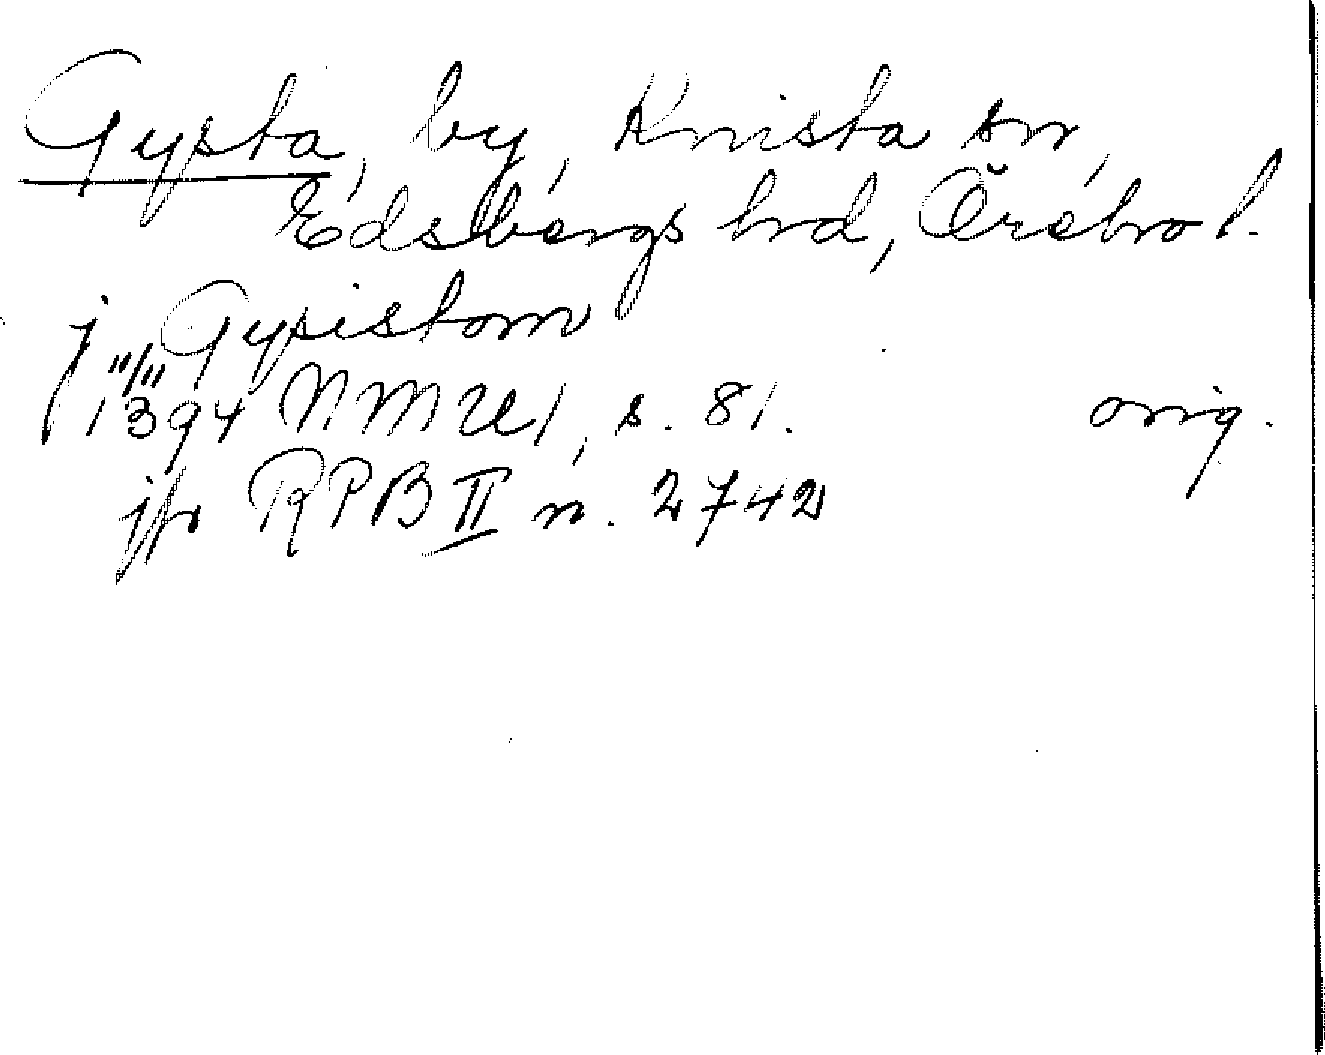 Gypsta, by, Knista sn,
Edsbergs hrd, Örebro l.
j Gypistom
11/11
1394 NMU 1, s. 81. orig.
jfr RPB II n. 2742